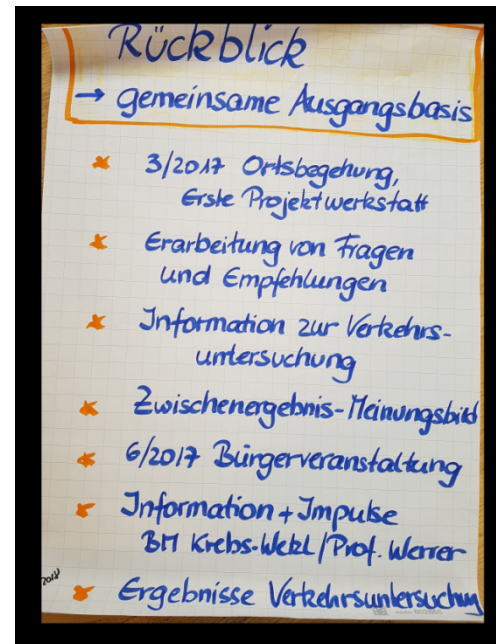 Rückblick
→ gemeinsame Ausgangsbasis
3/2017 Ortsbegehung,
Erste Projektwerkstatt
Erarbeitung von Fragen
und Empfehlungen
Information zur Verkehrs-
untersuchung
Zwischenergebnis-Meinungsbild
6/2017 Bürgerveranstaltung
Information + Impulse
BM Krebs-Wetzl / Prof. Werrer
Ergebnisse Verkehrsuntersuchung